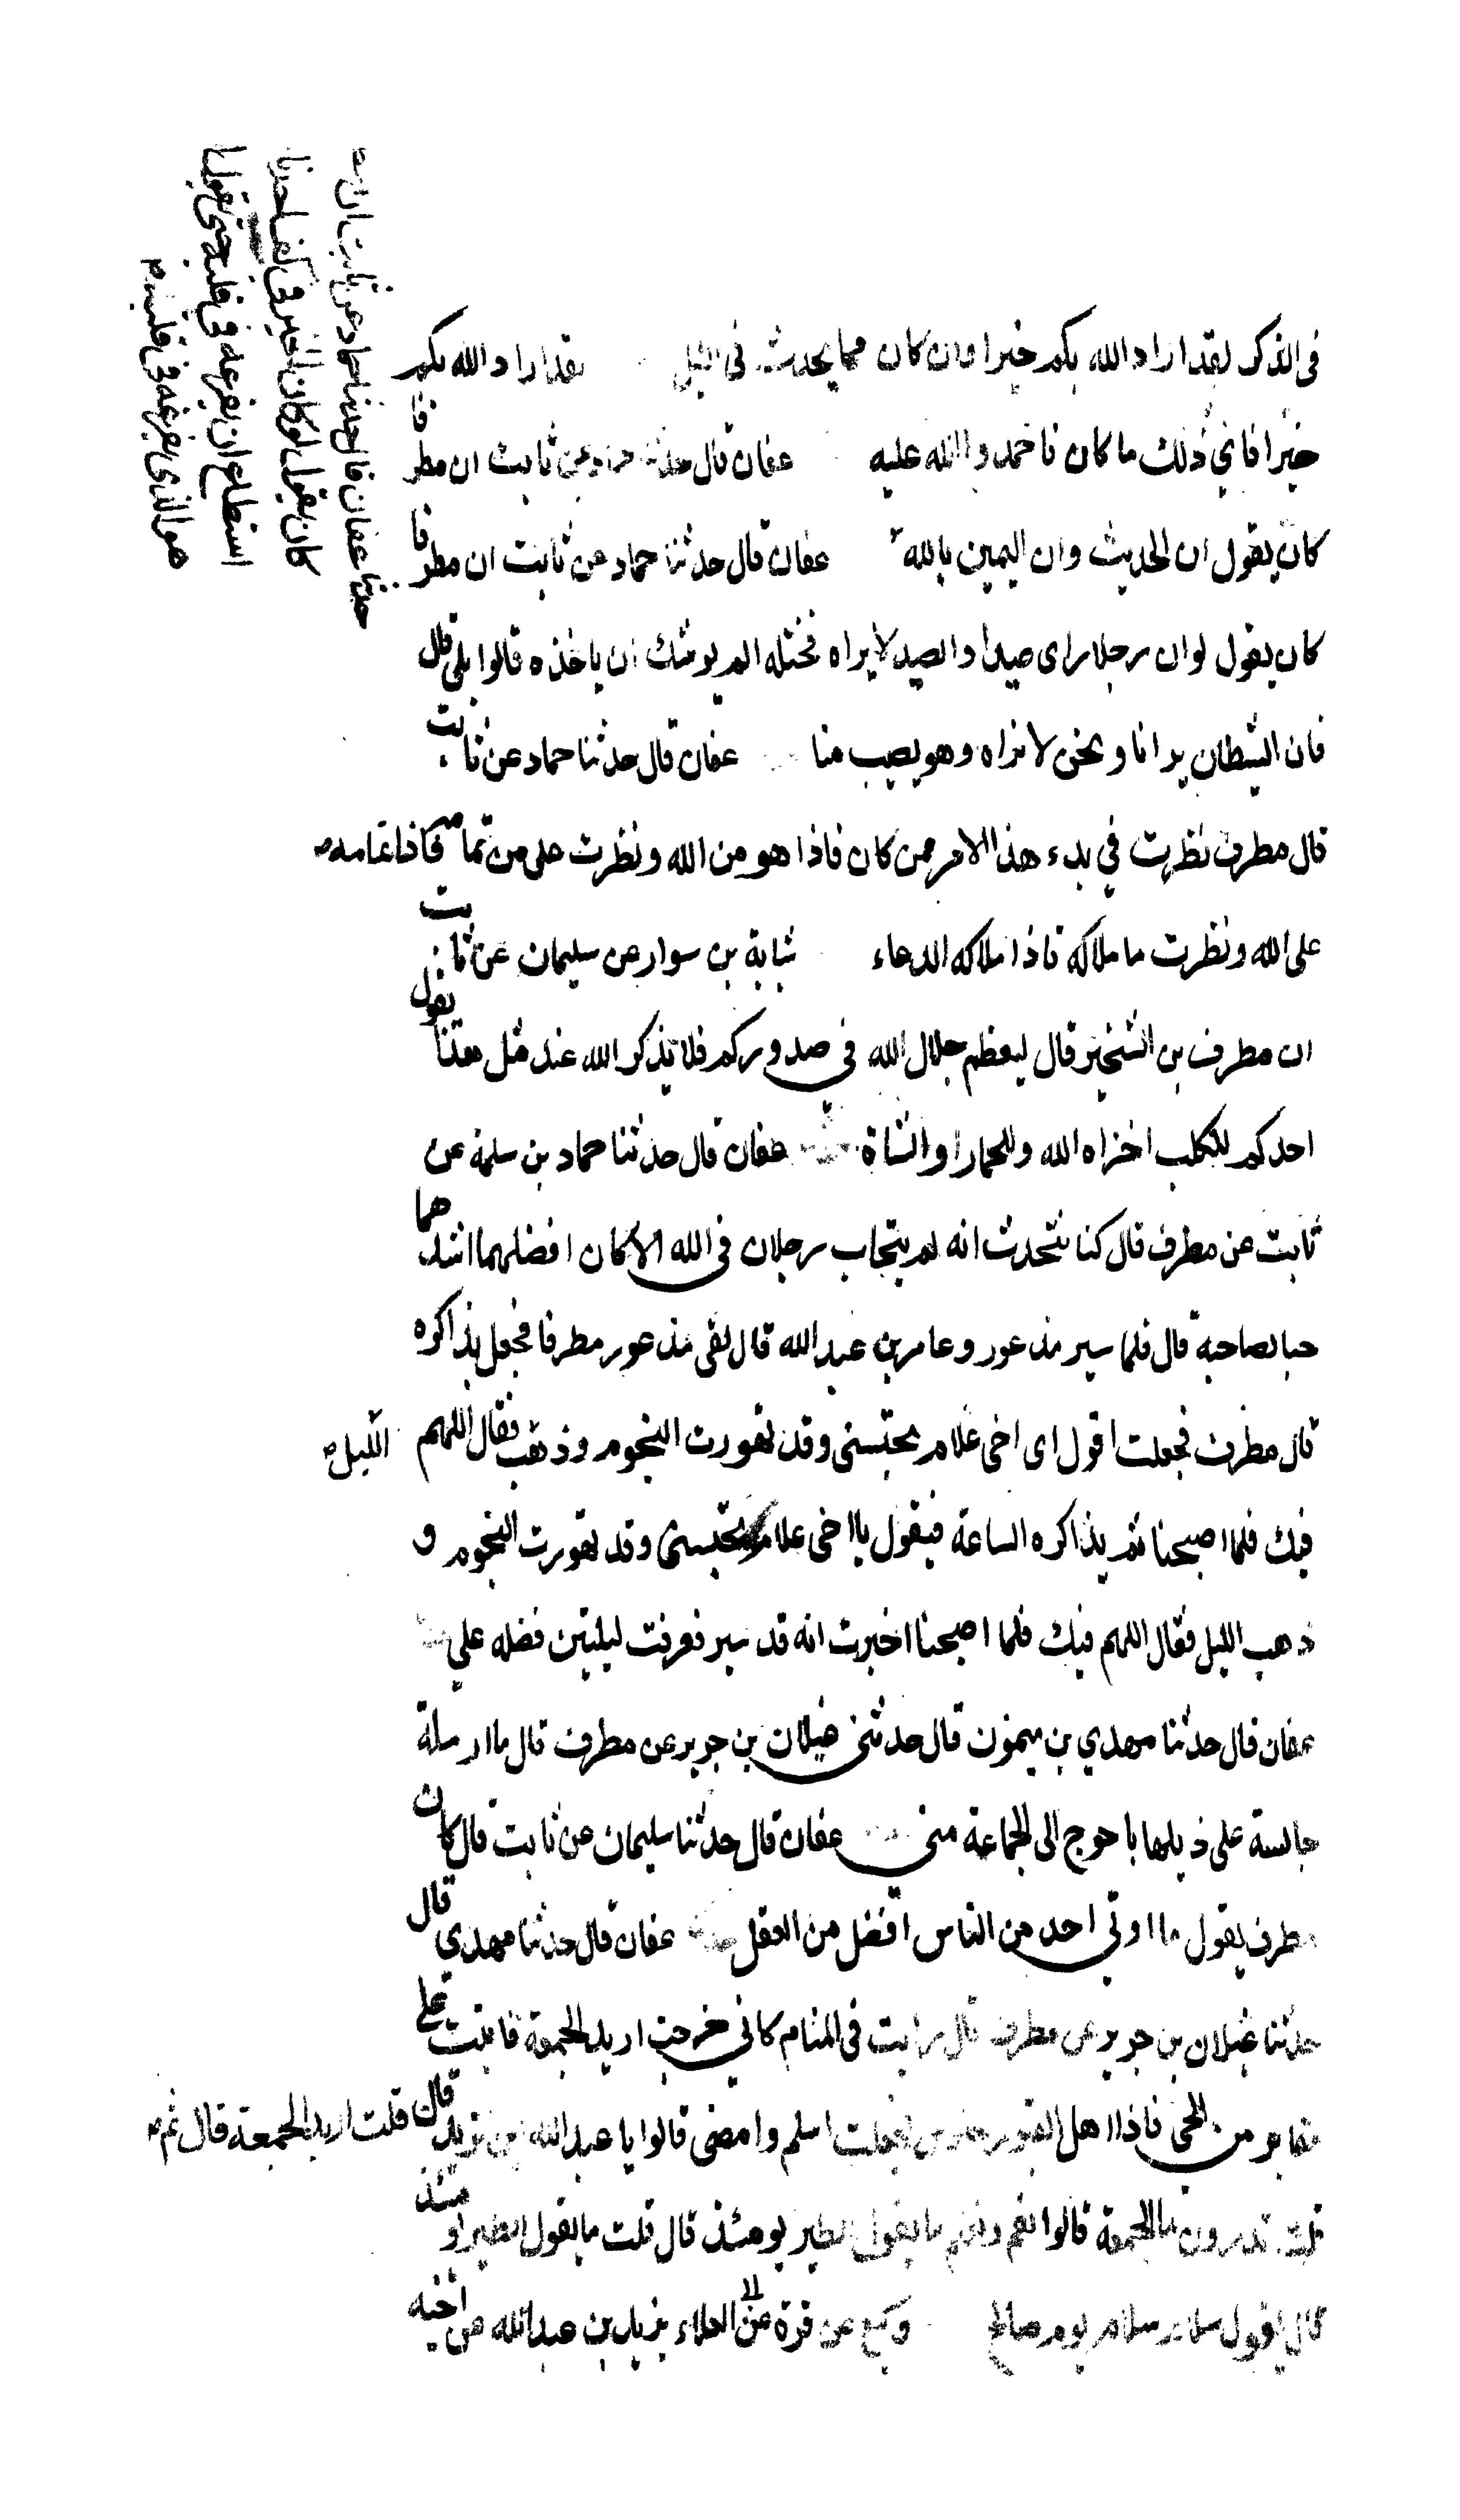 في الذكر لقد اراد الله بكم خيرا وان كان مما يحدث في الليل لقد اراد الله بكم
خيرا فاي ذلك ما كان فاحمدوا الله عليه عفان قال حدثنا حماد عن ثابت ان مطرفا
كان يقول ان الحديث وان اليمين بالله عفان قال حدثنا حماد عن ثابت ان مطرفا
كان يقول لو ان رجلا راى صيدا والصيد لا يراه فختله الم يوشك ان ياخذه قالوا بلى قال
فان الشيطان يرانا ونحن لا نراه وهو يصيب منا عفان قال حدثنا حماد عن ثابت
قال مطرف نظرت في بدء هذا الامر ممن كان فاذا هو من الله ونظرت على من تمامه فاذا تمامه
على الله ونظرت ما ملاكه فاذا ملاكه الدعاء شبابة بن سوار عن سليمان عن ثابت
ان مطرف بن الشخير قال ليعظم جلال الله في صدوركم فلا تذكر الله عند مثل هذا يقول
احدكم للكلب اخزاه الله وللحمار او الشاة عفان قال حدثنا حماد بن سلمة عن
ثابت عن مطرف قال كنا نتحدث انه لم يتحاب رجلان في الله الا كان افضلهما اشدهما
حبا لصاحبة قال فلما سير مذعور وعامر بن عبد الله قال لقى مذعور مطرفا فجعل يذاكره
قال مطرف فجعلت اقول اى اخى غلام يحتبسنى وقد تهورت النجوم وذهب الليل فقال اللهم
فيك فلما اصبحنا ثم يذاكره الساعة فيقول يا اخى علام تحتبسنى وقد تهورت النجوم و
ذهب الليل فقال اللهم فيك فلما اصبحنا اخبرت انه قد سير فعرفت ليلتين فضله علي
عفان قال حدثنا مهدي بن ميمون قال حدثنى غيلان بن جرير عن مطرف قال ما ارملة
جالسة على ذيلها باحوج الى الجماعة منى عفان قال حدثنا سليمان عن ثابت قال كان
مطرف يقول ما اوتي احد من الناس افضل من العقل عفان قال حدثنا مهدي قال
حدثنا غيلان بن جرير عن مطرف قال رايت في المنام كاني خرجت اريد الجمعة فاتيت على
مقابر من الحى فاذا اهل القبور جلوس فجعلت اسلم وامضى قالوا يا عبد الله اين تريد قال قلت اريد الجمعة قال ثم
قلت تدرون ما الجمعة قالوا نعم ونعلم ما يقول الطير يومئذ قال قلت ما يقول الطير يومئذ
قال يقول سلام سلام يوم صالح وكيع عن قرة عن العلاء يزيد بن عبد الله عن اخيه
حدثنا عفان قال حدثنا حماد عن ثابت ان
كان يقول لو كان الخير في كف احدنا
استطاع ان يفرغه في قلبه حتى يكون الله
هو الذى يفرغه في قلبه